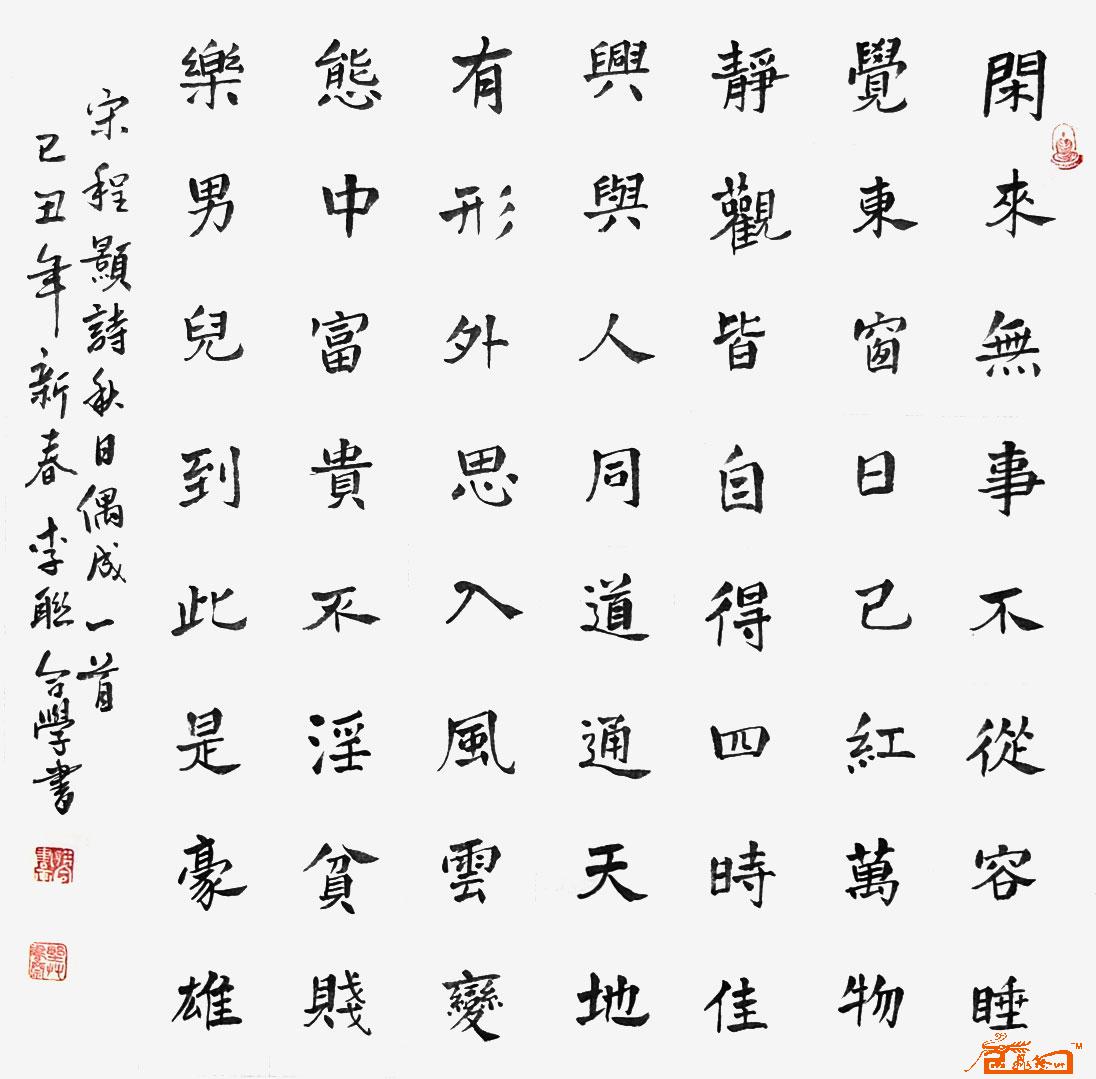 閑來無事不從容睡
覺東窗日已紅萬物
靜觀皆自得四時佳
興與人同道通天地
有形外思入風雲變
態中富貴不淫貧賤
樂男兒到此是豪雄
宋程顥詩秋日偶成一首
己丑年新春李聯合學書